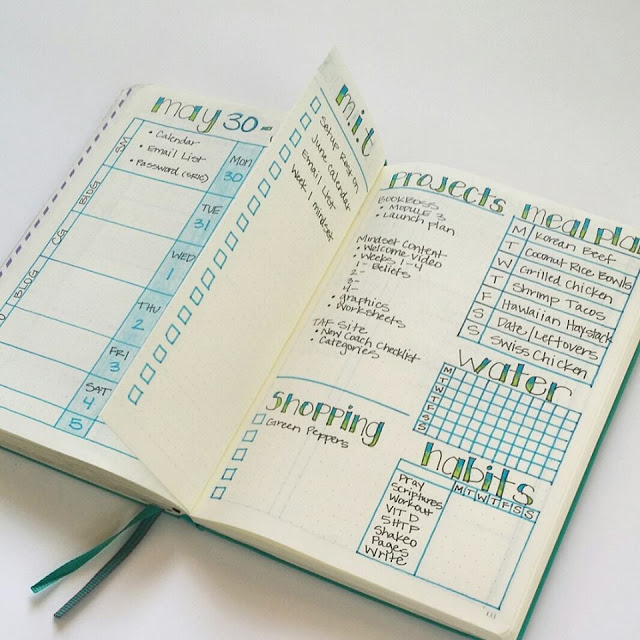 may 30-
SM
BLDG
CG
BLOG
D
• Calendar
• Email List
• Password (ERIC)
Mon
30
TUE
31
WED
1
THU
2
FRI
3
SAT
4
5
m.i.t
June calendar
Email List
Week 1 mindset
projects
BOOKBOSS
• MODULE 3
• Launch plan
Mindset Content
• Welcome Video
• Weeks 1-4
1- Beliefs
2-
3-
4-
• graphics
• Worksheets
TAF SITE
• New Coach Checklist
• Categories
shopping
Green Peppers
meal plan
M Korean Beef
T Coconut Rice Bowls
W Grilled Chicken
T Shrimp Tacos
F Hawaiian Haystack
S Date/Leftovers
S Swiss Chicken
water
M
T
W
T
F
S
S
habits
M T W T F S S
Pray
Scriptures
Workout
VIT D
5HTP
Shakeo
Pages
Write